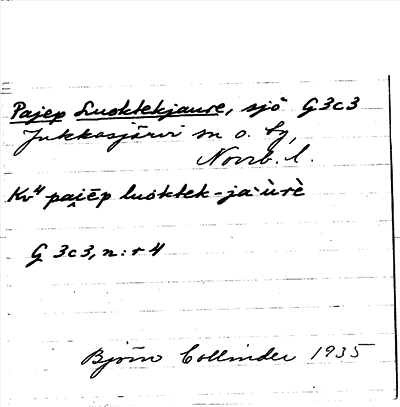 Pajep Luoktekjaure, sjö G3c3
Jukkasjärvi sn o. by,
Norrb. l.
Kv" pai̯ēp luoktek-ja·ùrè
G 3c3, n:r 4
Björn Collinder 1935